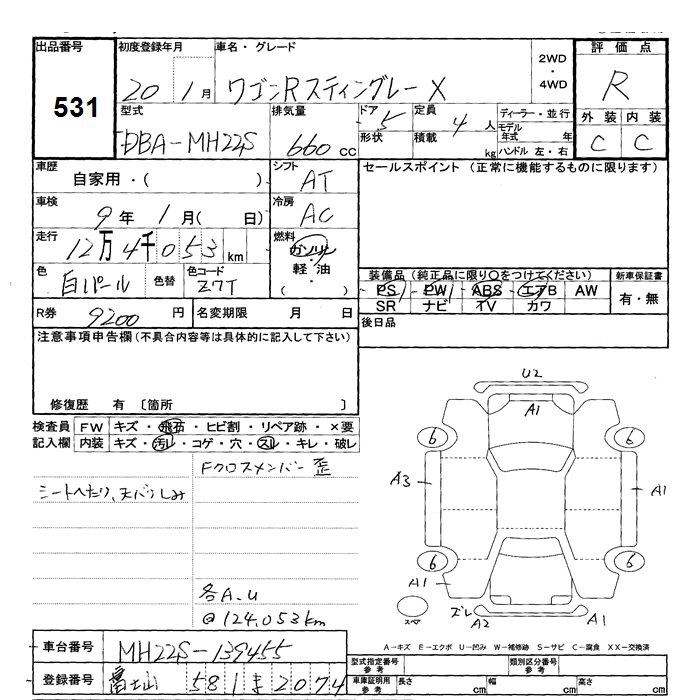 出品番号
531
初度登録年月
20 1月
車名・グレード
ワゴンRスティングレー X
2WD
・
4WD
評価点
R
外装 内装
C C
型式
DBA-MH22S
排気量
660 cc
ドア
5
形状
定員
4人
積載
kg
ディーラー・並行
モデル年式 年
ハンドル 左・右
車歴
自家用・( )
シフト
AT
セールスポイント (正常に機能するものに限ります)
車検
9年 1月( 日)
冷房
AC
走行
12万4千053 km
燃料
ガソリン
・
軽油
( )
色
白パール
色替
色コード
Z7T
装備品 (純正品に限り〇をつけてください)
PS PW ABS エアB AW
SR ナビ TV カワ
新車保証書
有・無
R券 9200円
名変期限 月 日
後日品
注意事項申告欄(不具合内容等は具体的に記入して下さい)
修復歴 有 〔箇所 〕
検査員記入欄
FW キズ・飛石・ヒビ割・リペア跡・×要
内装 キズ・汚レ・コゲ・穴・スレ・キレ・破レ
Fクロスメンバー 歪
シートへたり、天バリしみ
各A.U
@124,053km
U2
A1
6
6
A3
A1
6
6
A1
スペ
ズレ
A2
A1
A-キズ E-エクボ U-凹み W-補修跡 S-サビ C-腐食 XX-交換済
車台番号
MH22S-139455
登録番号
富士山 581 ま 2074
型式指定番号
参考
類別区分番号
参考
車庫証明用
参考
長さ cm
幅 cm
高さ cm